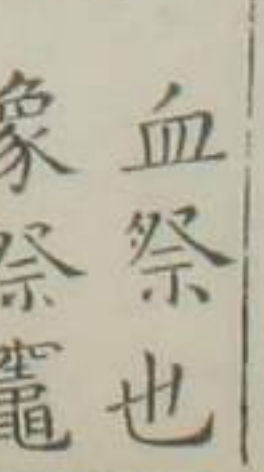 血祭也
象祭竈